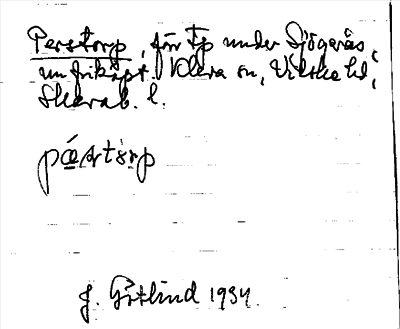 Perstorp, för Tp under Sjögerås,
nu friköpt. Kleva sn, Vilske hd,
Skarab. l.
pæ̀stòrp
J. Götlind 1934.